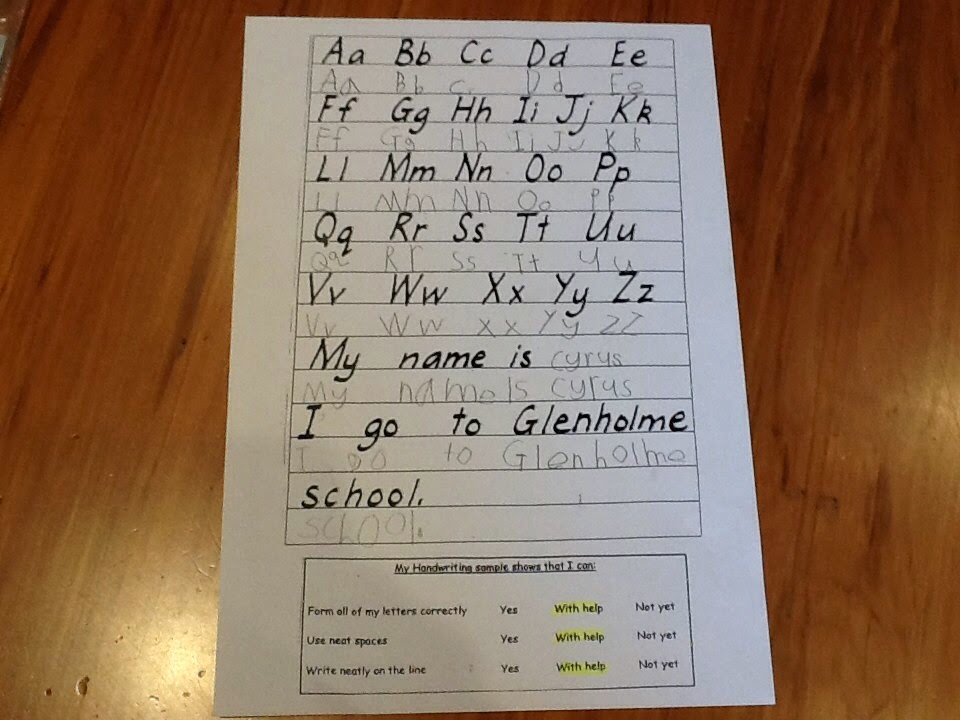 Aa Bb Cc Dd Ee
Aa Bb c Dd Ee
Ff Gg Hh Ii Jj Kk
Ff Gg Hh Ii Jj Kk
Ll Mm Nn Oo Pp
Ll Mm Nn Oo Pp
Qq Rr Ss Tt Uu
Qq Rr Ss Tt Uu
Vv Ww Xx Yy Zz
Vv Ww xx Yy zz
My name is cyrus
My name is cyrus
I go to Glenholme
I go to Glenholme
school.
school.
My Handwriting sample shows that I can:
Form all of my letters correctly Yes With help Not yet
Use neat spaces Yes With help Not yet
Write neatly on the line Yes With help Not yet